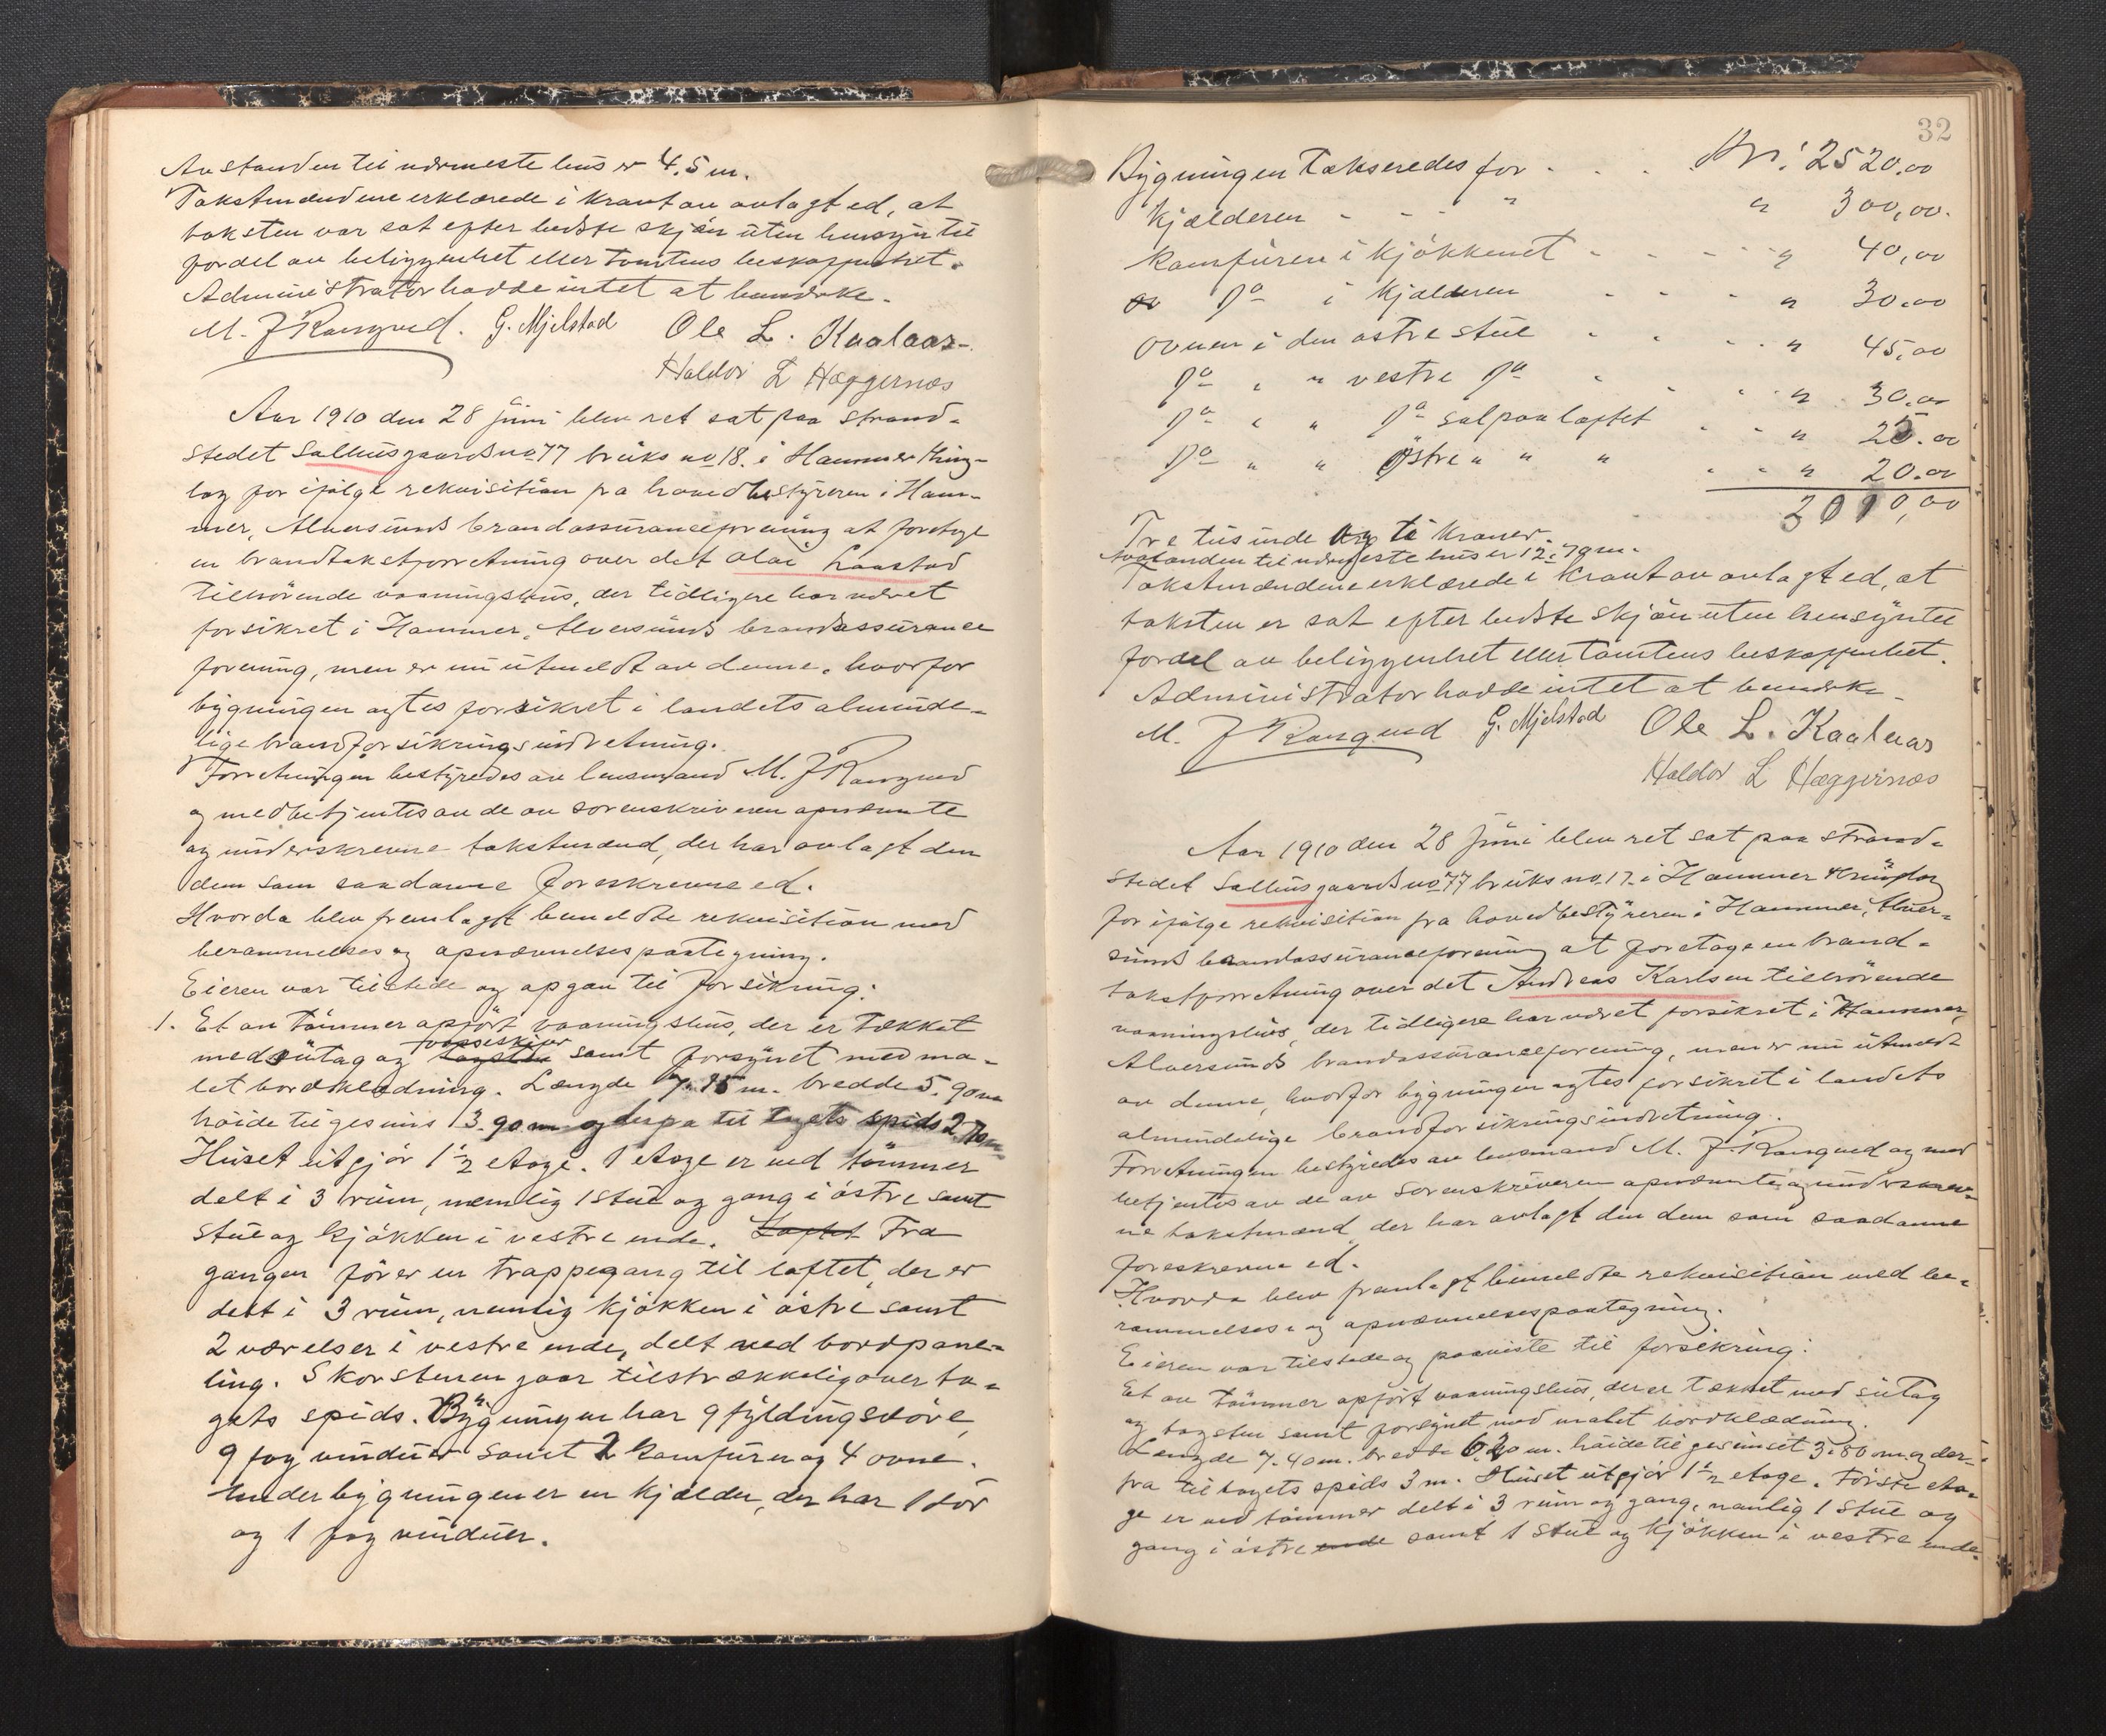 Avstanden til nærmeste hus er 4,5 m.
Takstmændene erklærede i kraft av avlagt ed, at
taksten var sat efter bedste skjøn uten hensyn til
fordel av beliggenhet eller tomtens beskaffenhet.
Administrator hadde intet at bemærke.
M. J. Ramqued. G. Mjelstad Ole L. Kaalaas
Haldor L Hæggernæs
Aar 1910 den 28 juni blev ret sat paa strand-
stedet Salhus gaards no 77 bruks no 18. i Hammer thing-
lag for ifølge rekvisition fra hovedbestyreren i Ham-
mer, Alversunds brandassuranceforening at foretage
en brandtakstforretning over det Olai Laastad
tilhörende vaaningshus, der tidligere har været
forsikret i Hammer, Alversunds brandassurance
forening, men er nu utmeldt av denne, hvorfor
bygningen agtes forsikret i landets alminde-
lige brandforsikringsindretning.
Forretningen bestyredes av lensmand M. J. Ramqued
og medbetjentes av de av sorenskriveren opnævnte
og underskrevne takstmænd, der har avlagt den
dem som saadanne foreskrevne ed.
Hvorda blev fremlagt bemeldte rekvisition med
berammelses og opnævnelsespaategning.
Eieren var tilstede og opgav til forsikring:
1. Et av tömmer opfört vaaningshus, der er tækket
med sutag og tagsten samt forsynet med ma-
let bordklædning. Længde 7.15 m. bredde 5.90 m
höide til gesims 3.90 m og derfra til tagets spids 2,70 m.
Huset utgjör 1 1/2 etage. 1 etage er ved tömmer
delt i 3 rum, nemlig 1 stue og gang i östre samt
stue og kjökken i vestre ende. Loftet Fra
gangen förer en trappegang til loftet, der er
delt i 3 rum, nemlig kjökken i östre samt
2 værelser i vestre ende, delt ved bordpane-
ling. Skorstenen gaar tilstrækkelig over ta-
gets spids. Bygningen har 9 fyldingsdöre,
9 fag vinduer samt 2 komfurer og 4 ovne.
Under bygningen er en kjelder, der har 1 dör
og 1 fag vinduer.
32
Bygningen takseredes for . . . . Kr: 2520.00
Kjælderen - - - " " 300,00.
Komfüren i kjökkenet - - - - " 40,00
do i kjælderen - - - " 30.00
Ovnen i den östre stue . . . . " 45,00
do " " vestre do . . . " 30.00
do " " do sal paa loftet . . " 25.00
do " " Östre " " " . . " 20.00
3010,00
Tre tusinde og ti kroner.
Avstanden til nærmeste hus er 12,70 m.
Takstmændene erklærede i kraft av avlagt ed, at
taksten er sat efter bedste skjön uten hensyn til
fordel av beliggenhet eller tomtens beskaffenhet.
Administrator hadde intet at bemærke.
M. J Ramqued G. Mjelstad Ole L. Kaalaas
Haldor L Hæggernæs
Aar 1910 den 28 juni blev ret sat paa strand-
stedet Salhus gaards no 77 bruks no. 17. i Hammer thinglag
for ifölge rekvisition fra hovedbestyreren i Hammer, Alver-
sunds brandassuranceforening at foretage en brand-
takstforretning over det Andreas Karlsen tilhörende
vaaningshus, der tidligere har været forsikret i Hammer,
Alversunds brandassuranceforening, men er nu utmeldt
av denne, hvorfor bygningen agtes forsikret i landets
almindelige brandforsikringsindretning.
Forretningen bestyredes av lensmand M. J. Ramqued og med
betjentes av de av sorenskriveren opnævnte og underskrev-
ne takstmænd, der har avlagt den dem som saadanne
foreskrevne ed.
Hvorda blev fremlagt bemeldte rekvisition med be-
rammelses- og opnævnelsespaategning.
Eieren var tilstede og paaviste til forsikring:
Et av tömmer opfört vaaningshus, der er tækket med sutag
og tagsten samt forsynet med malet bordklædning.
Længde 7.40 m. bredde m. höide til gesimset 3.80 m og der-
fra til tagets spids 3 m. Huset utgjör 1 1/2 etage. Förste eta-
ge er ved tömmer delt i 3 rum og gang, nemlig 1 stue og
gang i östre ende samt 1 stue og kjökken i vestre ende.